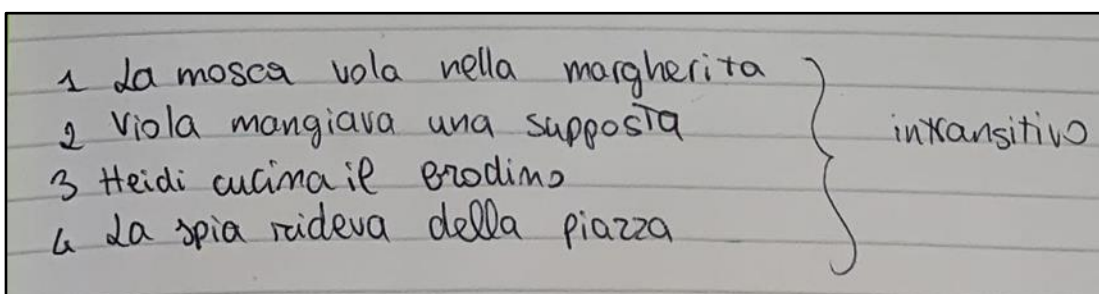 1 La mosca vola nella margherita
2 Viola mangiava una supposta
3 Heidi cucina il brodino
4 La spia rideva della piazza
intransitivo